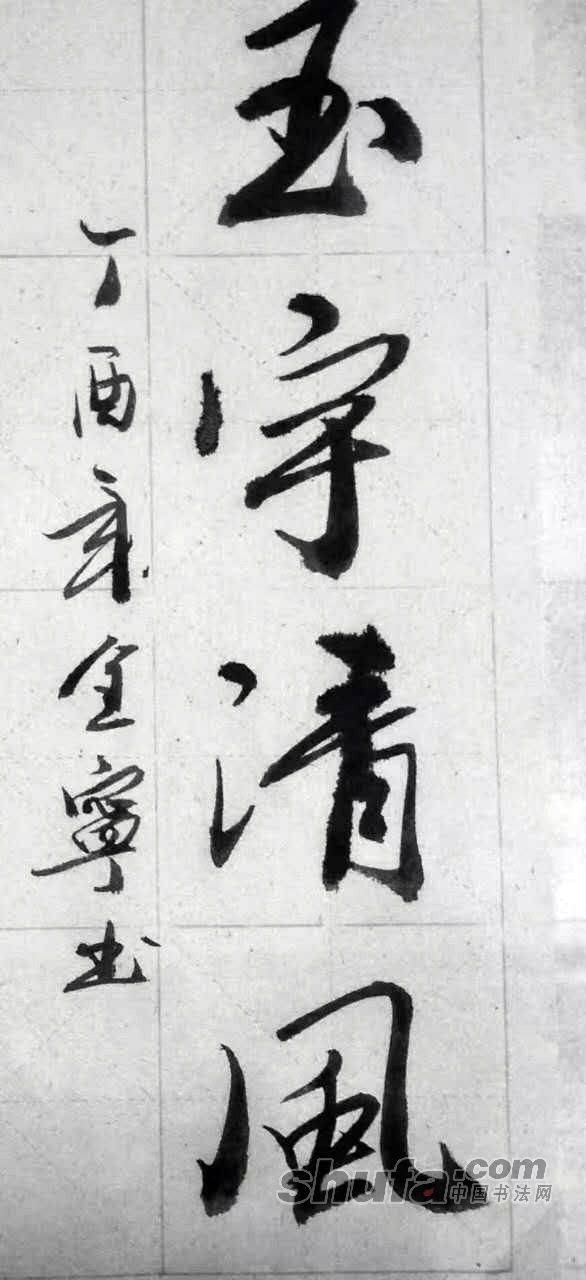 玉宇清風
丁酉年全寧书
shufa.com
中国书法网